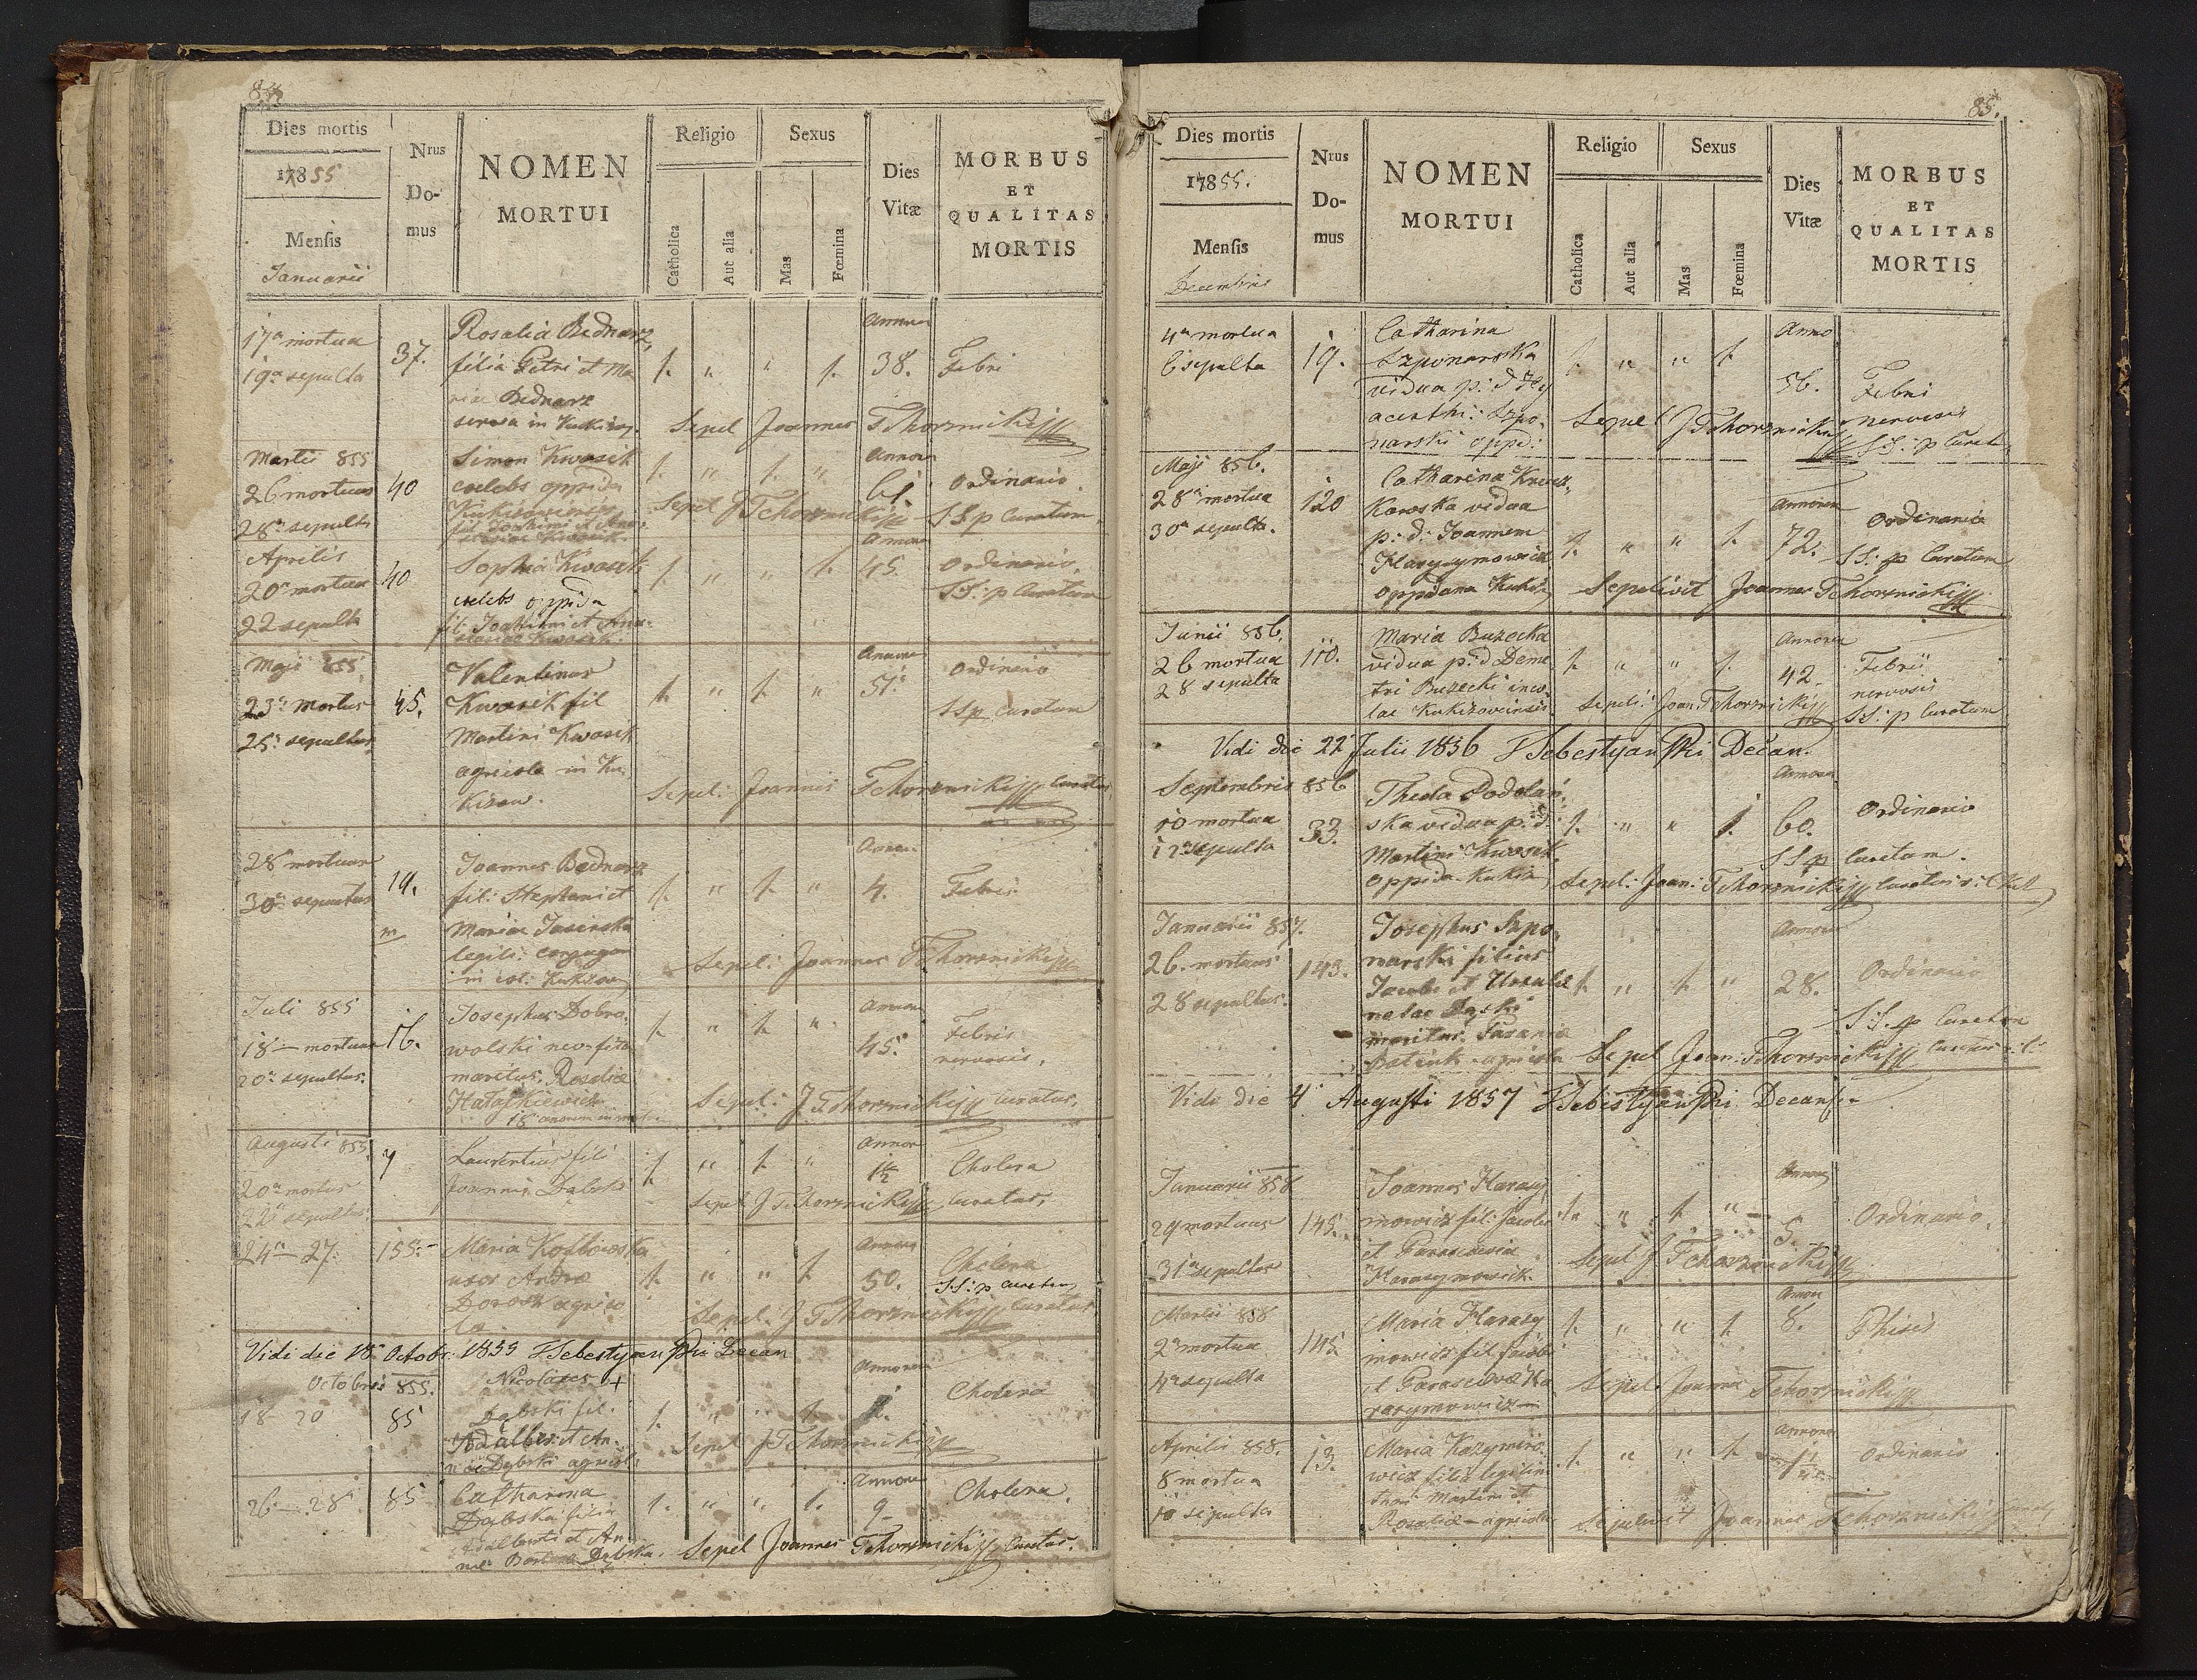 Dies mortis
1855
Mensis
Januarii
Nrus
Do-
mus
NOMEN
MORTUI
Religio
Catholica
Aut alia
Sexus
Mas
Fœmina
Dies
Vitæ
MORBUS
ET
QUALITAS
MORTIS
17a mortua
19a sepulta
37.
Rosalia Bednarz
filia Petri et Ma
riae Bednarz
serva in Kukizow
1. " " 1.
Annorum
38.
Febri
Sepel Joannes Tchorznicki
Martii 855
26 mortuus
28a sepultus
40
Simon Kwosik
celebs oppida
1. " 1. "
Annor
61.
Ordinario
SS. p Curatum
Sepel J Tchorznicki
Aprilis
20a mortua
22 sepulta
40
Sophia Kwosik
celebs oppida
fil: Joachimi et Ana-
1. " " 1.
Annor
45
Ordinario.
SS: p Curatum
Maji 855
23a Mortus
25a sepultus
45.
Valentinus
Kwosik fil
Martini Kwosik
agricola in Ku
kizow.
1. " 1. "
Annor
51.
Ordinario
SSp Curatum
Sepel: Joannes Tchorznicki Curatus
28 mortuus
30a sepultus
19.
Joannes Bednarz
fil: Stephani et
Mariae Jasinska
legiti: conjugum
in col: Kukizow
1. " 1. "
Annor
4.
Febri
Sepel: Joannes Tchorznicki
Juli 855
18 — mortuus
20a sepultus.
16.
Josephus Dobro.
wolski neofita
maritus Rosaliae
1. " 1. "
Annor
45.
Febris
nervosis.
Sepel: J Tchorznicki Curatus.
Augusti 855
20a mortus
22a sepultus.
7
Laurentius fili
Joannis Dąbski
1. " 1. "
Annor
1 1/2
Cholera
Sepel J Tchorznicki Curatus.
24a — 27.
155.
Maria Kozłowska
uxor Andrae
Dorosz agrico
la
1. " " 1.
Annor
50.
Cholera
SS: p Curatum
Sepel. J Tchorznicki Curatus
Vidi die 18 Octobr: 1855 Sebestyanski Decan
Octobris 855.
18 — 20
85
Nicolaus +
Dąbski fil.
Adalberti et An-
nae Dąbski agricol.
1. " " 1.
Annorum
Cholera
Sepel J Tchorznicki
26 — 28
85
Catharina
Dąbska filia
Adalberti et An-
nae Dąbska.
1. " " 1.
Annor
9
Cholera.
Sepel Joannes Tchorznicki Curatus.
85.
Dies mortis
1855.
Mensis
Decembris
Nrus
Do-
mus
NOMEN
MORTUI
Religio
Catholica
Aut alia
Sexus
Mas
Fœmina
Dies
Vitæ
MORBUS
ET
QUALITAS
MORTIS
4a mortua
6 sepulta
19.
Catharina
Szponarska
vidua p: d Hy
acinthi: Szpo-
narski oppd:
1. " " 1.
Anno
56.
Febri
nervosis
SS: p Curatum
Sepel J Tchorznicki
Maji 856.
28a mortua
30a sepulta.
120
Catharina
vidua
p: d: Joannem
Harasymowicz
oppidana Kukiz
1. " " 1.
Annorum
72.
Ordinario
SS: p Curatum
Sepelivit Joannes Tchorznicki
Junii 856.
26 mortua
28 sepulta
110.
Maria Buzecka
vidua p: d Deme
tri Buzecki inco-
lae Kukizoviensis
1. " " 1.
Annorum
42.
Febri
nervosis
SS: p Curatum
Sepeli: Joan: Tchorznicki
Vidi die 22 Julii 1856 Sebestyanski Decan.
Septembris 856
10 mortua
12a sepulta
33.
Thecla Podolań-
ska vidua p: d:
Martini Kwosik
oppida Kukiz
1. " " 1.
Annor
60.
Ordinario
SS p Curatum.
Sepel: Joan: Tchorznicki Curatus
Januarii 857.
26. mortuus
28 sepultus.
143.
Josephus Szpo-
narski filius
Jacobi et Ursulae
natae Dąbski
maritus
agricola
1. " 1. "
Annor
28.
Ordinario
SS. p Curatum
Sepel Joan: Tchorznicki Curatus
Vidi die 4 Augusti 1857 Sebestyanski Decan
Januarii 858
29 mortuus
31a sepultus
145.
Joannes Harasy
mowicz fil: Jacobi
et Parascevia
Harasymowicz.
1. " 1. "
Annor
5.
Ordinario.
Sepel J Tchorznicki
Martii 858
2a mortua
4a sepulta
145
Maria Harasy
mowicz fil Jacobi
et Parascevae Ha
rasymowicz
1. " " 1.
Annor
8.
Phisis
Sepel. Joannes Tchorznicki
Aprilis 858.
8 mortua
10 sepulta
13.
Maria Kazymiro
wicz filia legitim
Martini et
Rosaliae — agricolae
1. " " 1.
Annor
Ordinario
Sepelivit Joannes Tchorznicki